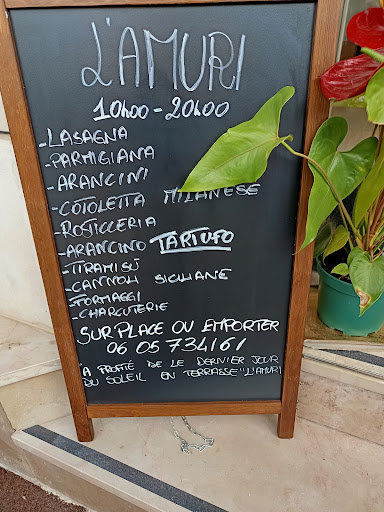 L'AMURI
10h00-20h00
-LASAGNA
-PARMIGIANA
-ARANCINI
-COTOLETTA MILANESE
-ROSTICCERIA
-ARANCINO TARTUFO
-TIRAMISÙ
-CANNOLI SICILIANE
-FORMAGGI
-CHARCUTERIE
SUR PLACE OU EMPORTER
06 05 734161
"A PROFITÉ DE LE DERNIER JOUR
DU SOLEIL EN TERRASSE "L'AMURI